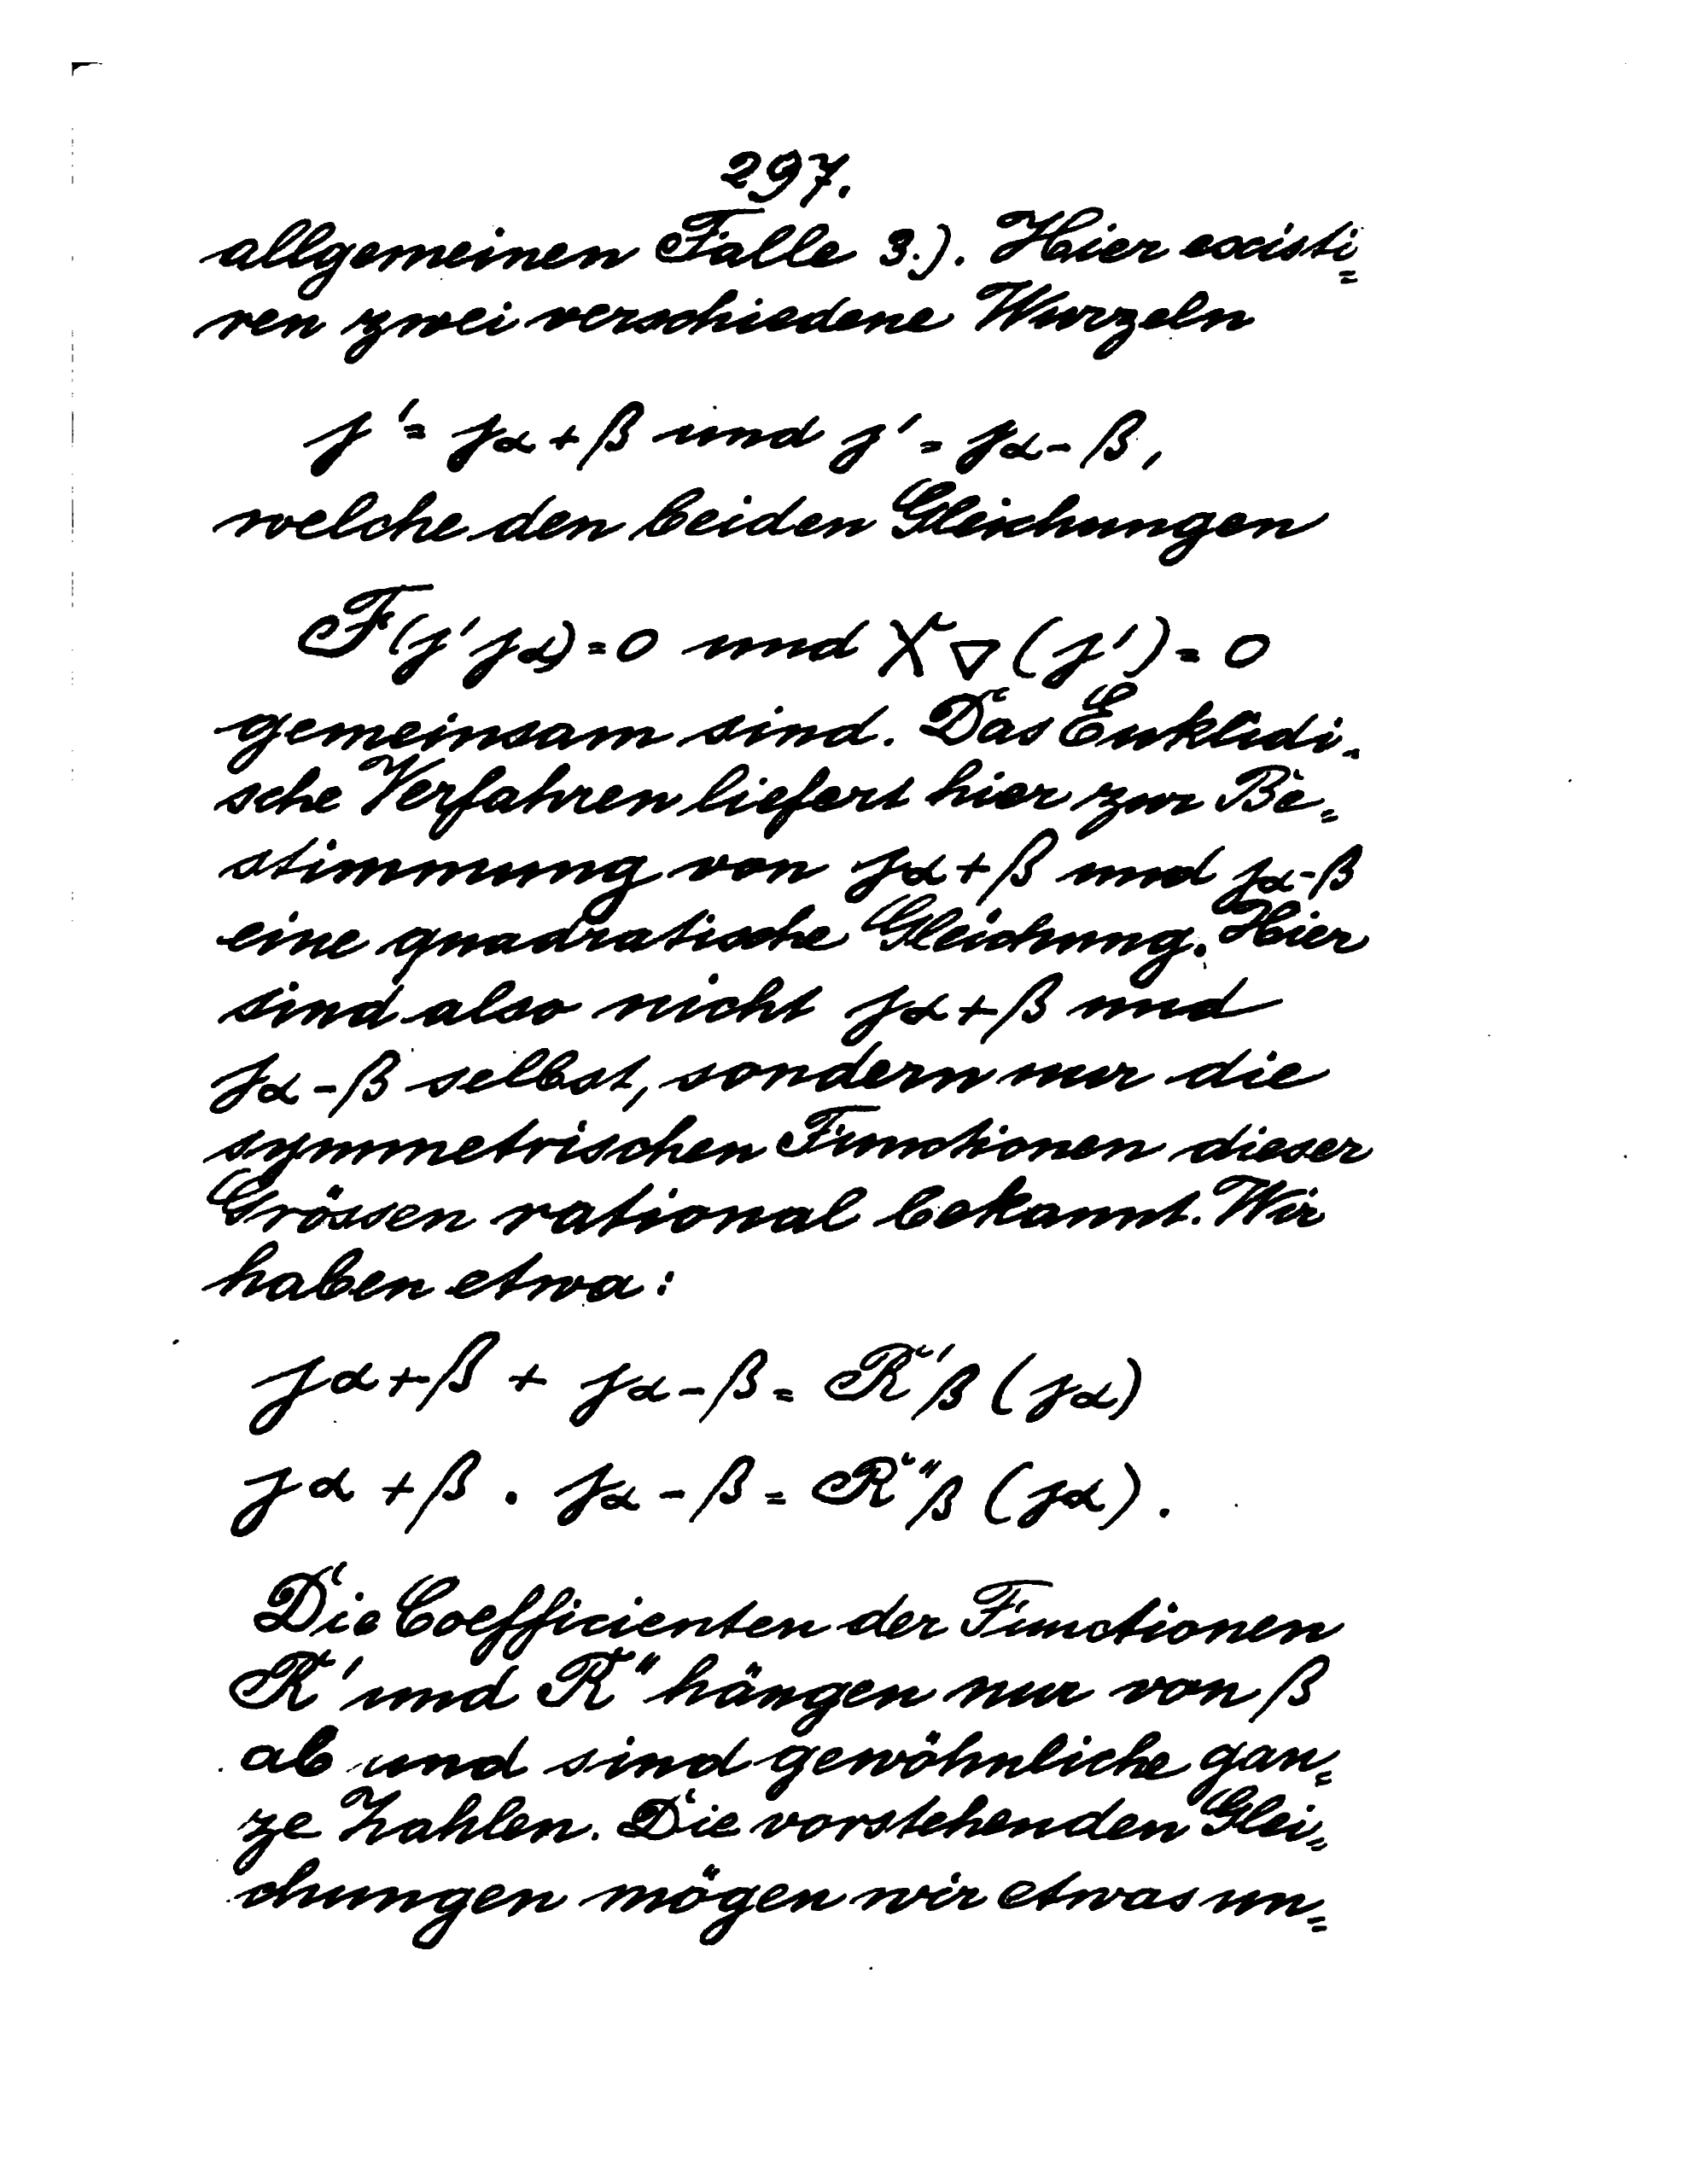 297.
allgemeinen Falle 3.). Hier existi=
ren zwei verschiedene Wurzeln
j' = jα+β und j' = jα-β,
welche den beiden Gleichungen
F(j' jα) = 0 und X▽(j') = 0
gemeinsam sind. Das Euklidi-
sche Verfahren liefert hier zur Be=
stimmung von jα+β und jα-β
eine quadratische Gleichung. Hier
sind also nicht jα+β und
jα-β selbst, sondern nur die
symmetrischen Functionen dieser
Grössen rational bekannt. Wir
haben etwa:
jα+β + jα-β = R'β (jα)
jα+β . jα-β = R"β (jα).
Die Coefficienten der Functionen
R' und R" hängen nur von β
ab und sind gewöhnliche gan=
ze Zahlen. Die vorstehenden Glei=
chungen mögen wir etwas um=